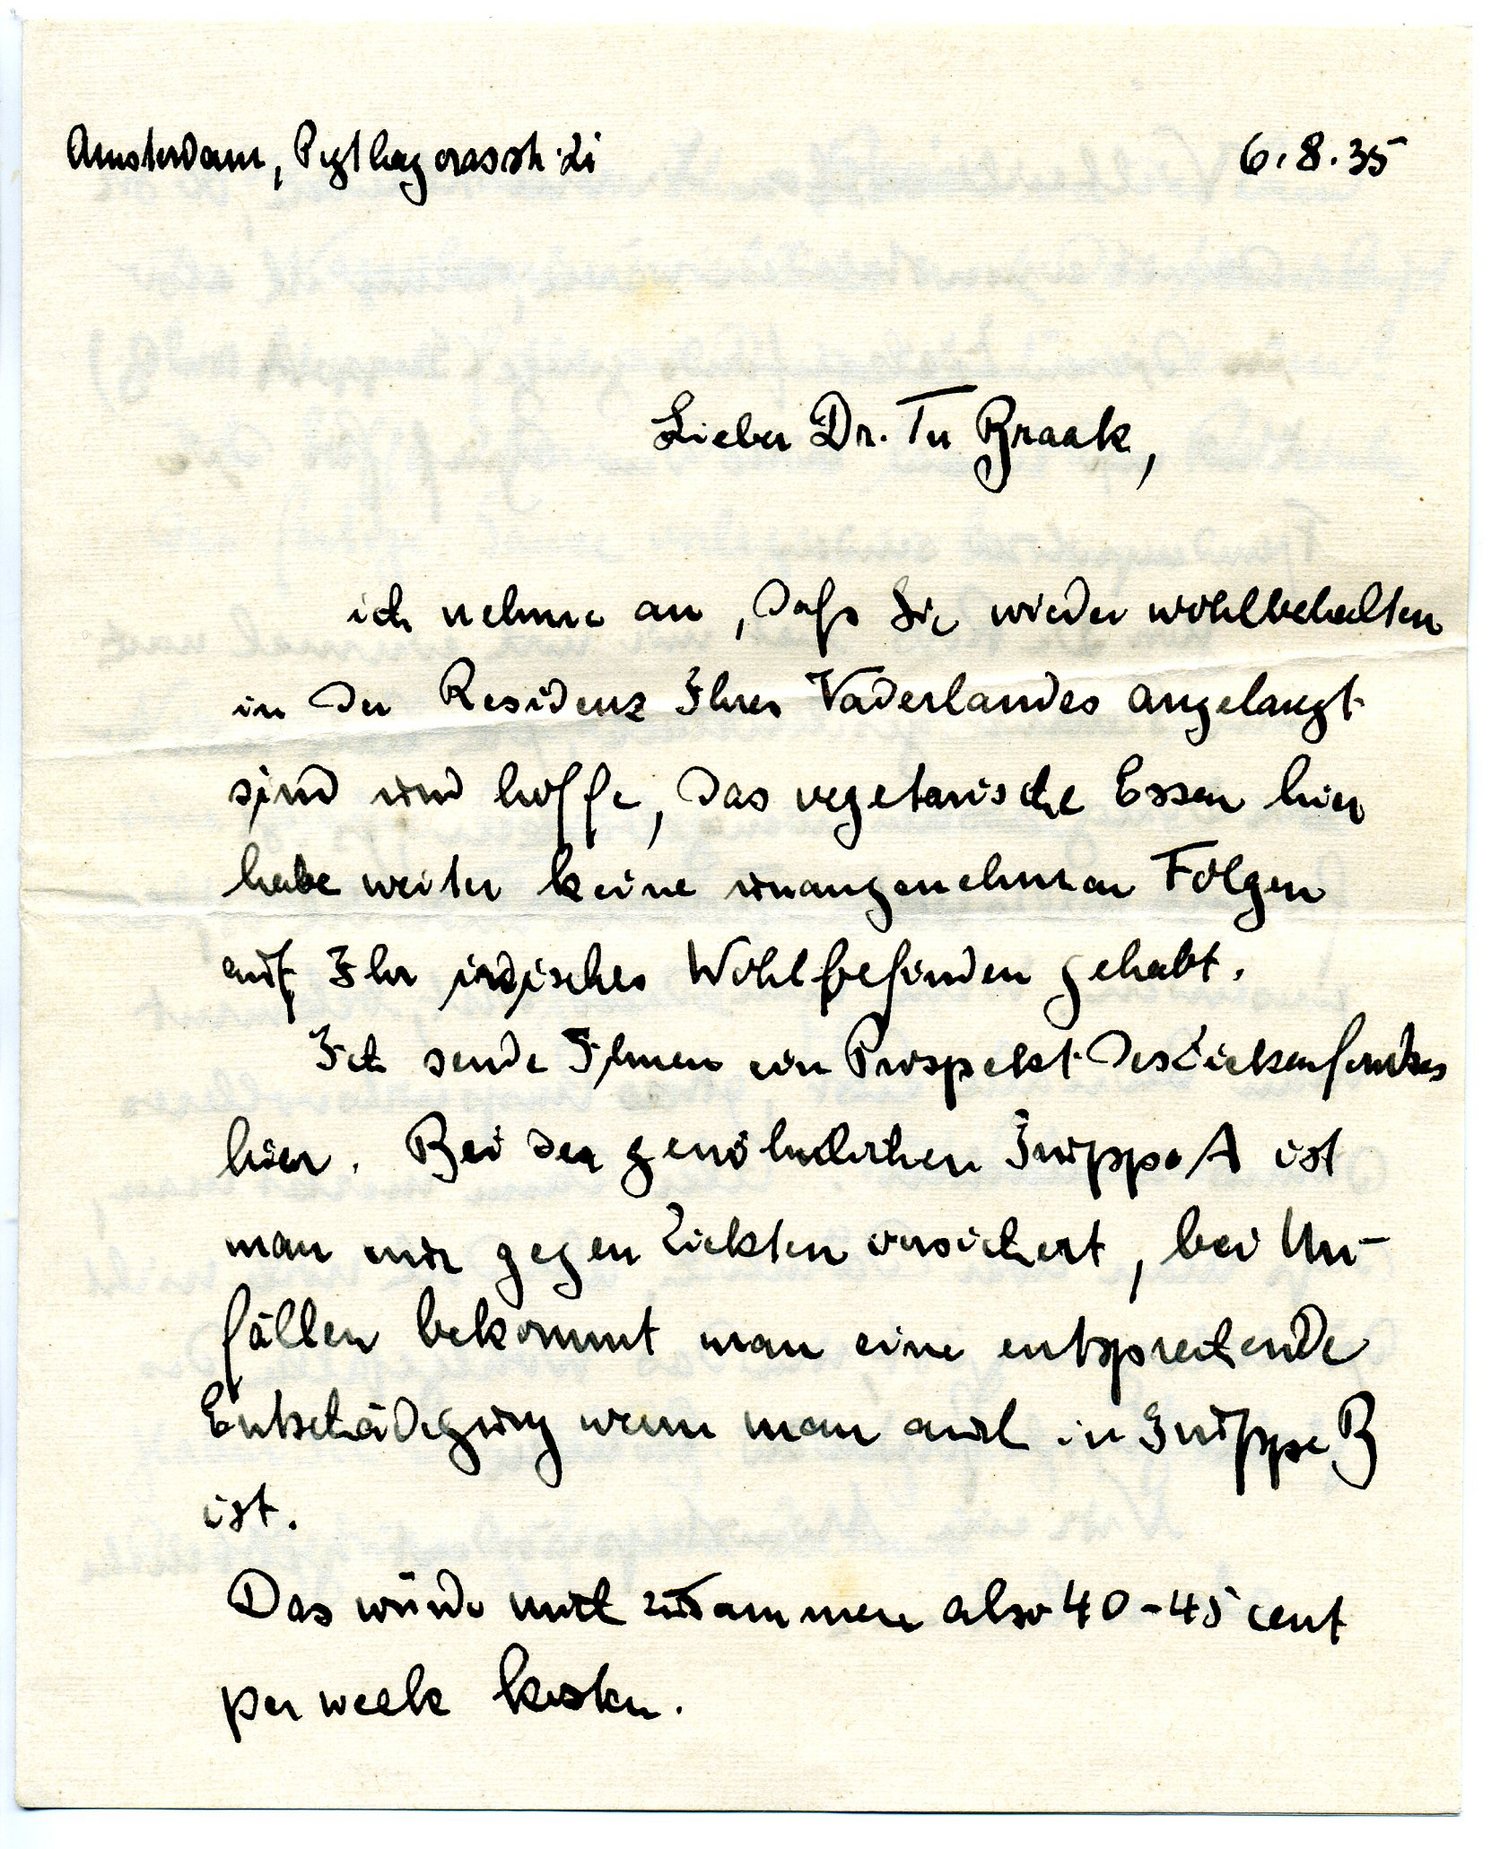 Amsterdam, Pythagorasstr. 21 6.8.35
Lieber Dr. Ter Braak,
ich nehme an, dass Sie wieder wohlbehalten
in der Residenz Ihres Vaderlandes angelangt
sind und hoffe, das vegetarische Essen hier
habe weiter keine unangenehmen Folgen
auf Ihr irdisches Wohlbefinden gehabt.
Ich sende Ihnen ein Prospekt des Ziekenfondses
hier. Bei der gewöhnlichen Gruppe A ist
man nur gegen Ziekten versichert, bei Un-
fällen bekommt man eine entsprechende
Entschädigung wenn man auch in Gruppe B
ist.
Das würde mich zusammen also 40-45 cent
per week kosten.